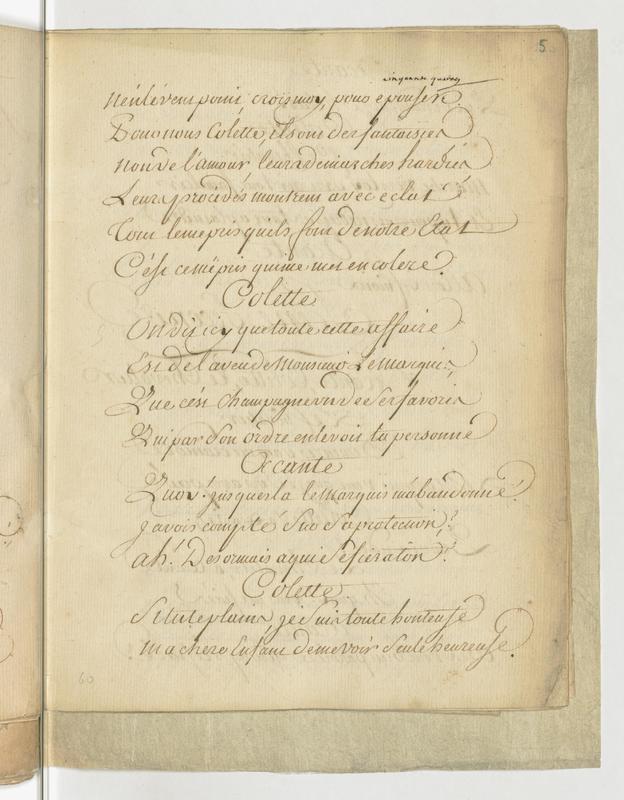 5
cinquante quatre
N'enlévent point, crois moy, pour épouser.
Pour nous Colette, ils ont des fantaisies
Non de l'amour, leurs demarches hardies
Leurs procédés montrent avec eclat
Tout le mepris quils font de notre Etat
C'est ce mépris qui me met en colere.
Colette
On dit icy que toute cette affaire
Est de l'aveu de Monsieur Le Marquis;
Que c'est Champagne un de ses favoris
Qui par son ordre enlevoit ta personne
Accante
Quoy! jusques la le Marquis m'abandonne!
J'avois compté sur sa protection?
ah! Desormais a qui se fiera t'on?
Colette.
Si tu te plains, je suis toute honteuse
Ma chere Enfant de me voir seule heureuse.
60